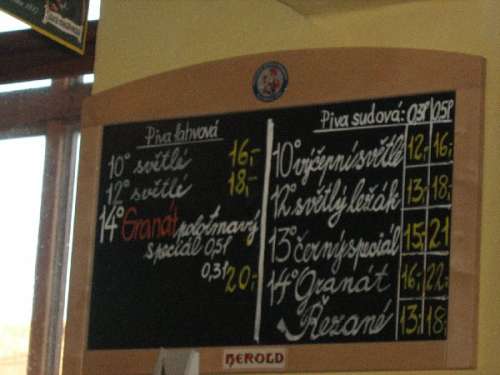 Piva lahvová
10° světlé 16,-
12° světlé 18,-
14° Granát polotmavý
speciál 0,5l
0,3l 20,-
Piva sudová: 0,3l 0,5l
10° výčepní světlé 12,- 16,-
12° světlý ležák 13,- 18,-
13° černý speciál 15,- 21
14° Granát 16,- 22,-
Řezané 13,- 18,-
HEROLD